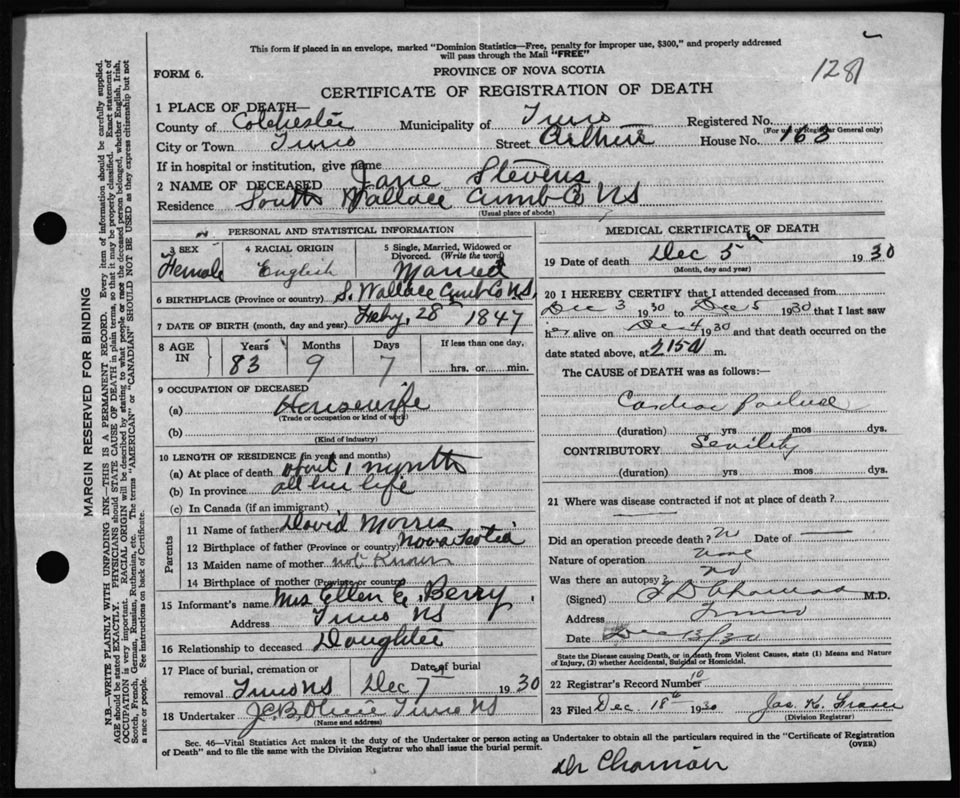 This form if placed in an envelope, marked "Dominion Statistics—Free, penalty for improper use, $300," and properly addressed
will pass through the Mail "FREE"
FORM 6.
PROVINCE OF NOVA SCOTIA
1281
CERTIFICATE OF REGISTRATION OF DEATH
1 PLACE OF DEATH—
County of Colchester Municipality of Truro Registered No.
(For use of Registrar General only)
City or Town Truro Street Arthur House No. 163
If in hospital or institution, give name
2 NAME OF DECEASED Jane Stevens
Residence South Wallace Cumb Co NS
(Usual place of abode)
PERSONAL AND STATISTICAL INFORMATION
3 SEX Female
4 RACIAL ORIGIN English
5 Single, Married, Widowed or Divorced. (Write the word) Married
6 BIRTHPLACE (Province or country) S. Wallace Cumb Co NS.
7 DATE OF BIRTH (month, day and year) Feby. 28 1847
8 AGE IN Years 83 Months 9 Days 7 If less than one day. hrs. or min.
9 OCCUPATION OF DECEASED
(a) Housewife
(Trade or occupation or kind of work)
(b)
(Kind of industry)
10 LENGTH OF RESIDENCE (in years and months)
(a) At place of death about 1 month
(b) In province all her life
(c) In Canada (if an immigrant)
Parents
11 Name of father David Morris
12 Birthplace of father (Province or country) Nova Scotia
13 Maiden name of mother not known
14 Birthplace of mother (Province or country)
15 Informant's name Mrs Ellen E. Berry
Address Truro NS
16 Relationship to deceased Daughter
17 Place of burial, cremation or removal Truro NS Date of burial Dec 7th 1930
18 Undertaker Truro NS
(Name and address)
MEDICAL CERTIFICATE OF DEATH
19 Date of death Dec 5th 1930
(Month, day and year)
20 I HEREBY CERTIFY that I attended deceased from
Dec 3 1930 to Dec 5 1930 that I last saw
h alive on Dec 4 1930 and that death occurred on the
date stated above, at 215 a m.
The CAUSE of DEATH was as follows:—
Cardiac failure
(duration) yrs mos dys.
CONTRIBUTORY Senility
(duration) yrs mos dys.
21 Where was disease contracted if not at place of death?
Did an operation precede death? No Date of —
Nature of operation None
Was there an autopsy? No
(Signed) M.D.
Address Truro
Date Dec 13/30
State the Disease causing Death, or in death from Violent Causes, state (1) Means and Nature
of Injury, (2) whether Accidental, Suicidal or Homicidal.
22 Registrar's Record Number
23 Filed Dec 18th 1930 Jas. K. Fraser
(Division Registrar)
Sec. 46—Vital Statistics Act makes it the duty of the Undertaker or person acting as Undertaker to obtain all the particulars required in the "Certificate of Registration
of Death" and to file the same with the Division Registrar who shall issue the burial permit.
(OVER)
Dr
MARGIN RESERVED FOR BINDING
N.B.—WRITE PLAINLY WITH UNFADING INK—THIS IS A PERMANENT RECORD. Every item of information should be carefully supplied.
AGE should be stated EXACTLY. PHYSICIANS should STATE CAUSE OF DEATH in plain terms, so that it may be properly classified. Exact statement of
OCCUPATION is very important. RACIAL ORIGIN will be described by stating to what people or race the deceased person belonged, whether English, Irish,
Scotch, French, German, Russian, Ruthenian, etc. The terms "AMERICAN" or "CANADIAN" SHOULD NOT BE USED as they express citizenship but not
a race or people. See instructions on back of Certificate.